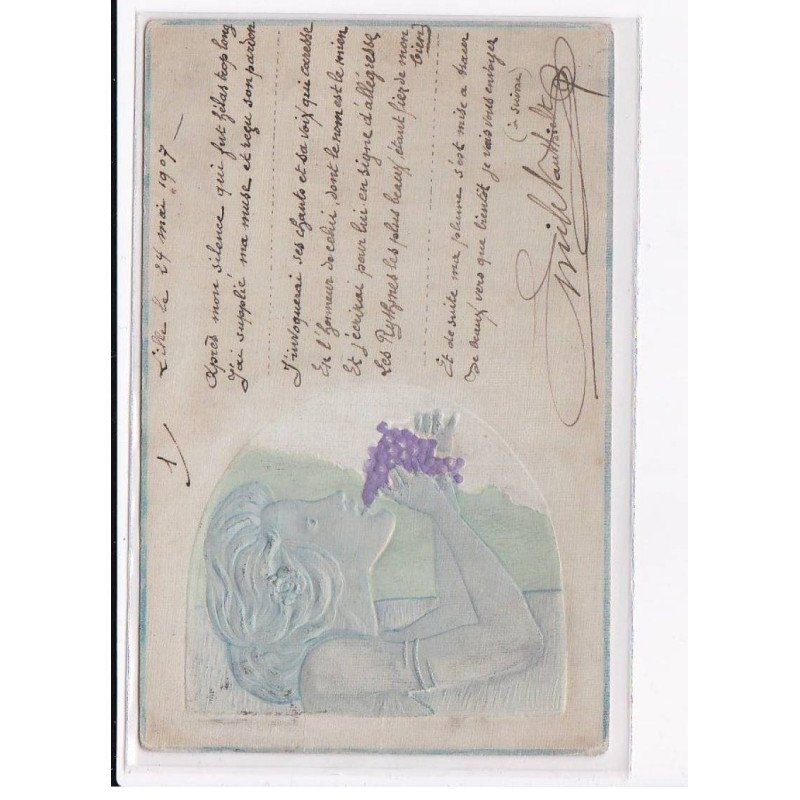 1/
Lille le 24 mai 1907 —
Après mon silence qui fut hélas trop long
J'ai supplié ma muse et reçu son pardon
J'invoquerai ses chants et sa voix qui caresse
En l'honneur de celui, dont le nom est le mien
Et j'écrirai pour lui en signe d'allégresse
Les Rythmes les plus beaux, étant fier de mon
bien)
Et de suite ma plume s'est mise a tracer
De beaux vers que bientôt je vais vous envoyer
(à suivre)
Emile